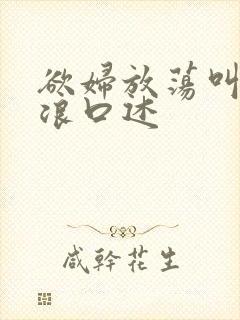 欲婦放蕩叫
浪口述
咸幹花生